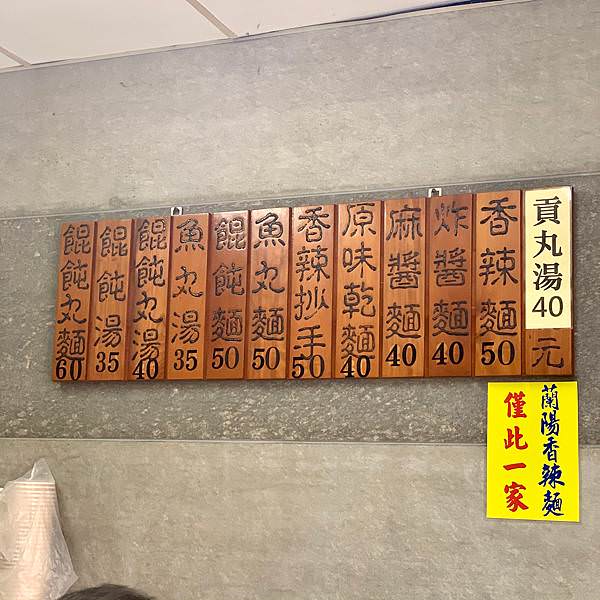 貢丸湯40元
香辣麵50
炸醬麵40
麻醬麵40
原味乾麵40
香辣抄手50
魚丸麵50
餛飩麵50
魚丸湯35
餛飩丸湯40
餛飩湯35
餛飩丸麵60
蘭陽香辣麵
僅此一家